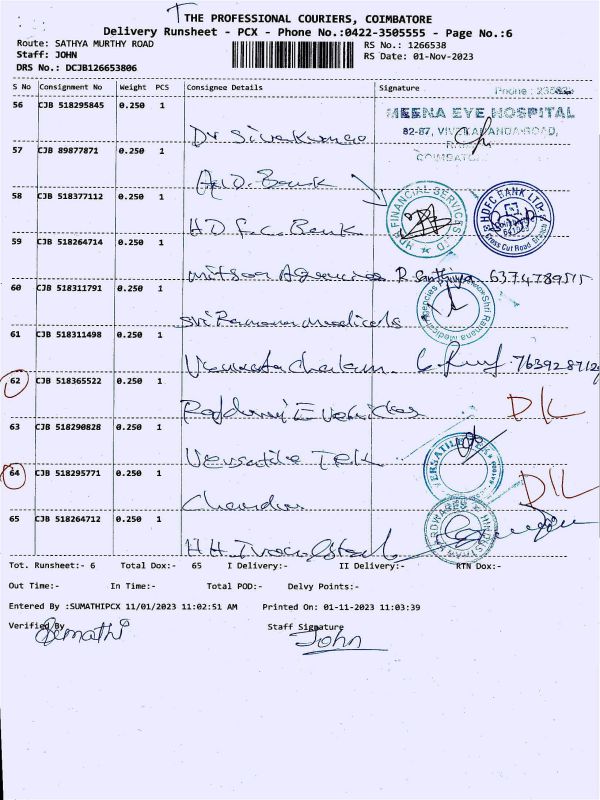 THE PROFESSIONAL COURIERS, COIMBATORE
Delivery Runsheet - PCX - Phone No.:0422-3505555 - Page No.:6
Route: SATHYA MURTHY ROAD
RS No.: 1266538
Staff: JOHN
RS Date: 01-Nov-2023
DRS No.: DCJB126653806
S No Consignment No Weight PCS Consignee Details Signature
Phone :
56 CJB 518295845 0.250 1 Dr Sivakumar
MEENA EYE HOSPITAL
82-87, VIVEKANANDA ROAD,
COIMBATORE
57 CJB 89877871 0.250 1 Bank
58 CJB 518377112 0.250 1 HDFC Bank
HDB FINANCIAL SERVICES LTD
HDFC BANK LTD.
Cross Cut Road Branch
59 CJB 518264714 0.250 1 Agencies R. Santhiya 6374789515
60 CJB 518311791 0.250 1 Sri Ramana medicals
Sri Ramana Medical Agencies
61 CJB 518311498 0.250 1 Venkatachalam 763928712
62 CJB 518365522 0.250 1 E Vehicles D/L
63 CJB 518290828 0.250 1 Versatile Tek
VERSATILE TEK
64 CJB 518295771 0.250 1 Chandra D/L
65 CJB 518264712 0.250 1 H.H. Steel
HARDWARES HINDUSTAN
Tot. Runsheet:- 6 Total Dox:- 65 I Delivery:- II Delivery:- RTN Dox:-
Out Time:- In Time:- Total POD:- Delvy Points:-
Entered By :SUMATHIPCX 11/01/2023 11:02:51 AM Printed On: 01-11-2023 11:03:39
Verified By Staff Signature
Sumathi John